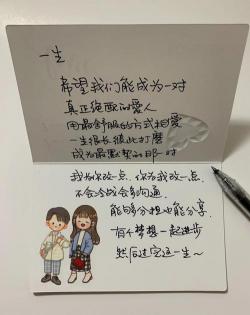 一生
希望我们能成为一对
真正绝配的爱人
用最舒服的方式相爱
一生很长彼此打磨
成为最默契的那一对
我为你改一点，你为我改一点，
不会冷战会多沟通，
能够分担也能分享，
有个梦想一起进步
然后过完这一生～